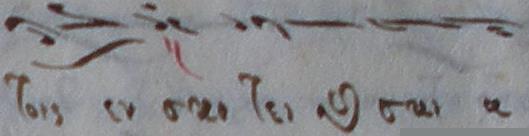 τοις εν σκο τει ϗ σκι α